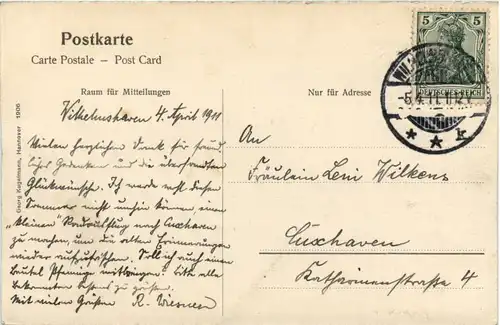 Postkarte
Carte Postale – Post Card
Raum für Mitteilungen
Nur für Adresse
Georg Kugelmann, Hannover 1906
5 5
DEUTSCHES REICH
5.4.11.11-12V.
* * k
Wilhelmshaven 4. April 1911
Vielen herzlichen Dank für freund-
liches Gedenken und die übersandten
Glückwünsche. Ich werde mit diesen
Sommer nicht umhin können einen
"kleinen" Radausflug nach Cuxhaven
zu machen, um die alten Erinnerungen
wieder aufzufrischen. Soll ich auch einen
Beutel Pfennige mitbringen? Bitte alle
Bekannten bestens zu grüßen.
Mit vielen Grüßen R.
An
Fräulein Leni Wilkens
Cuxhaven
Katharinenstraße 4